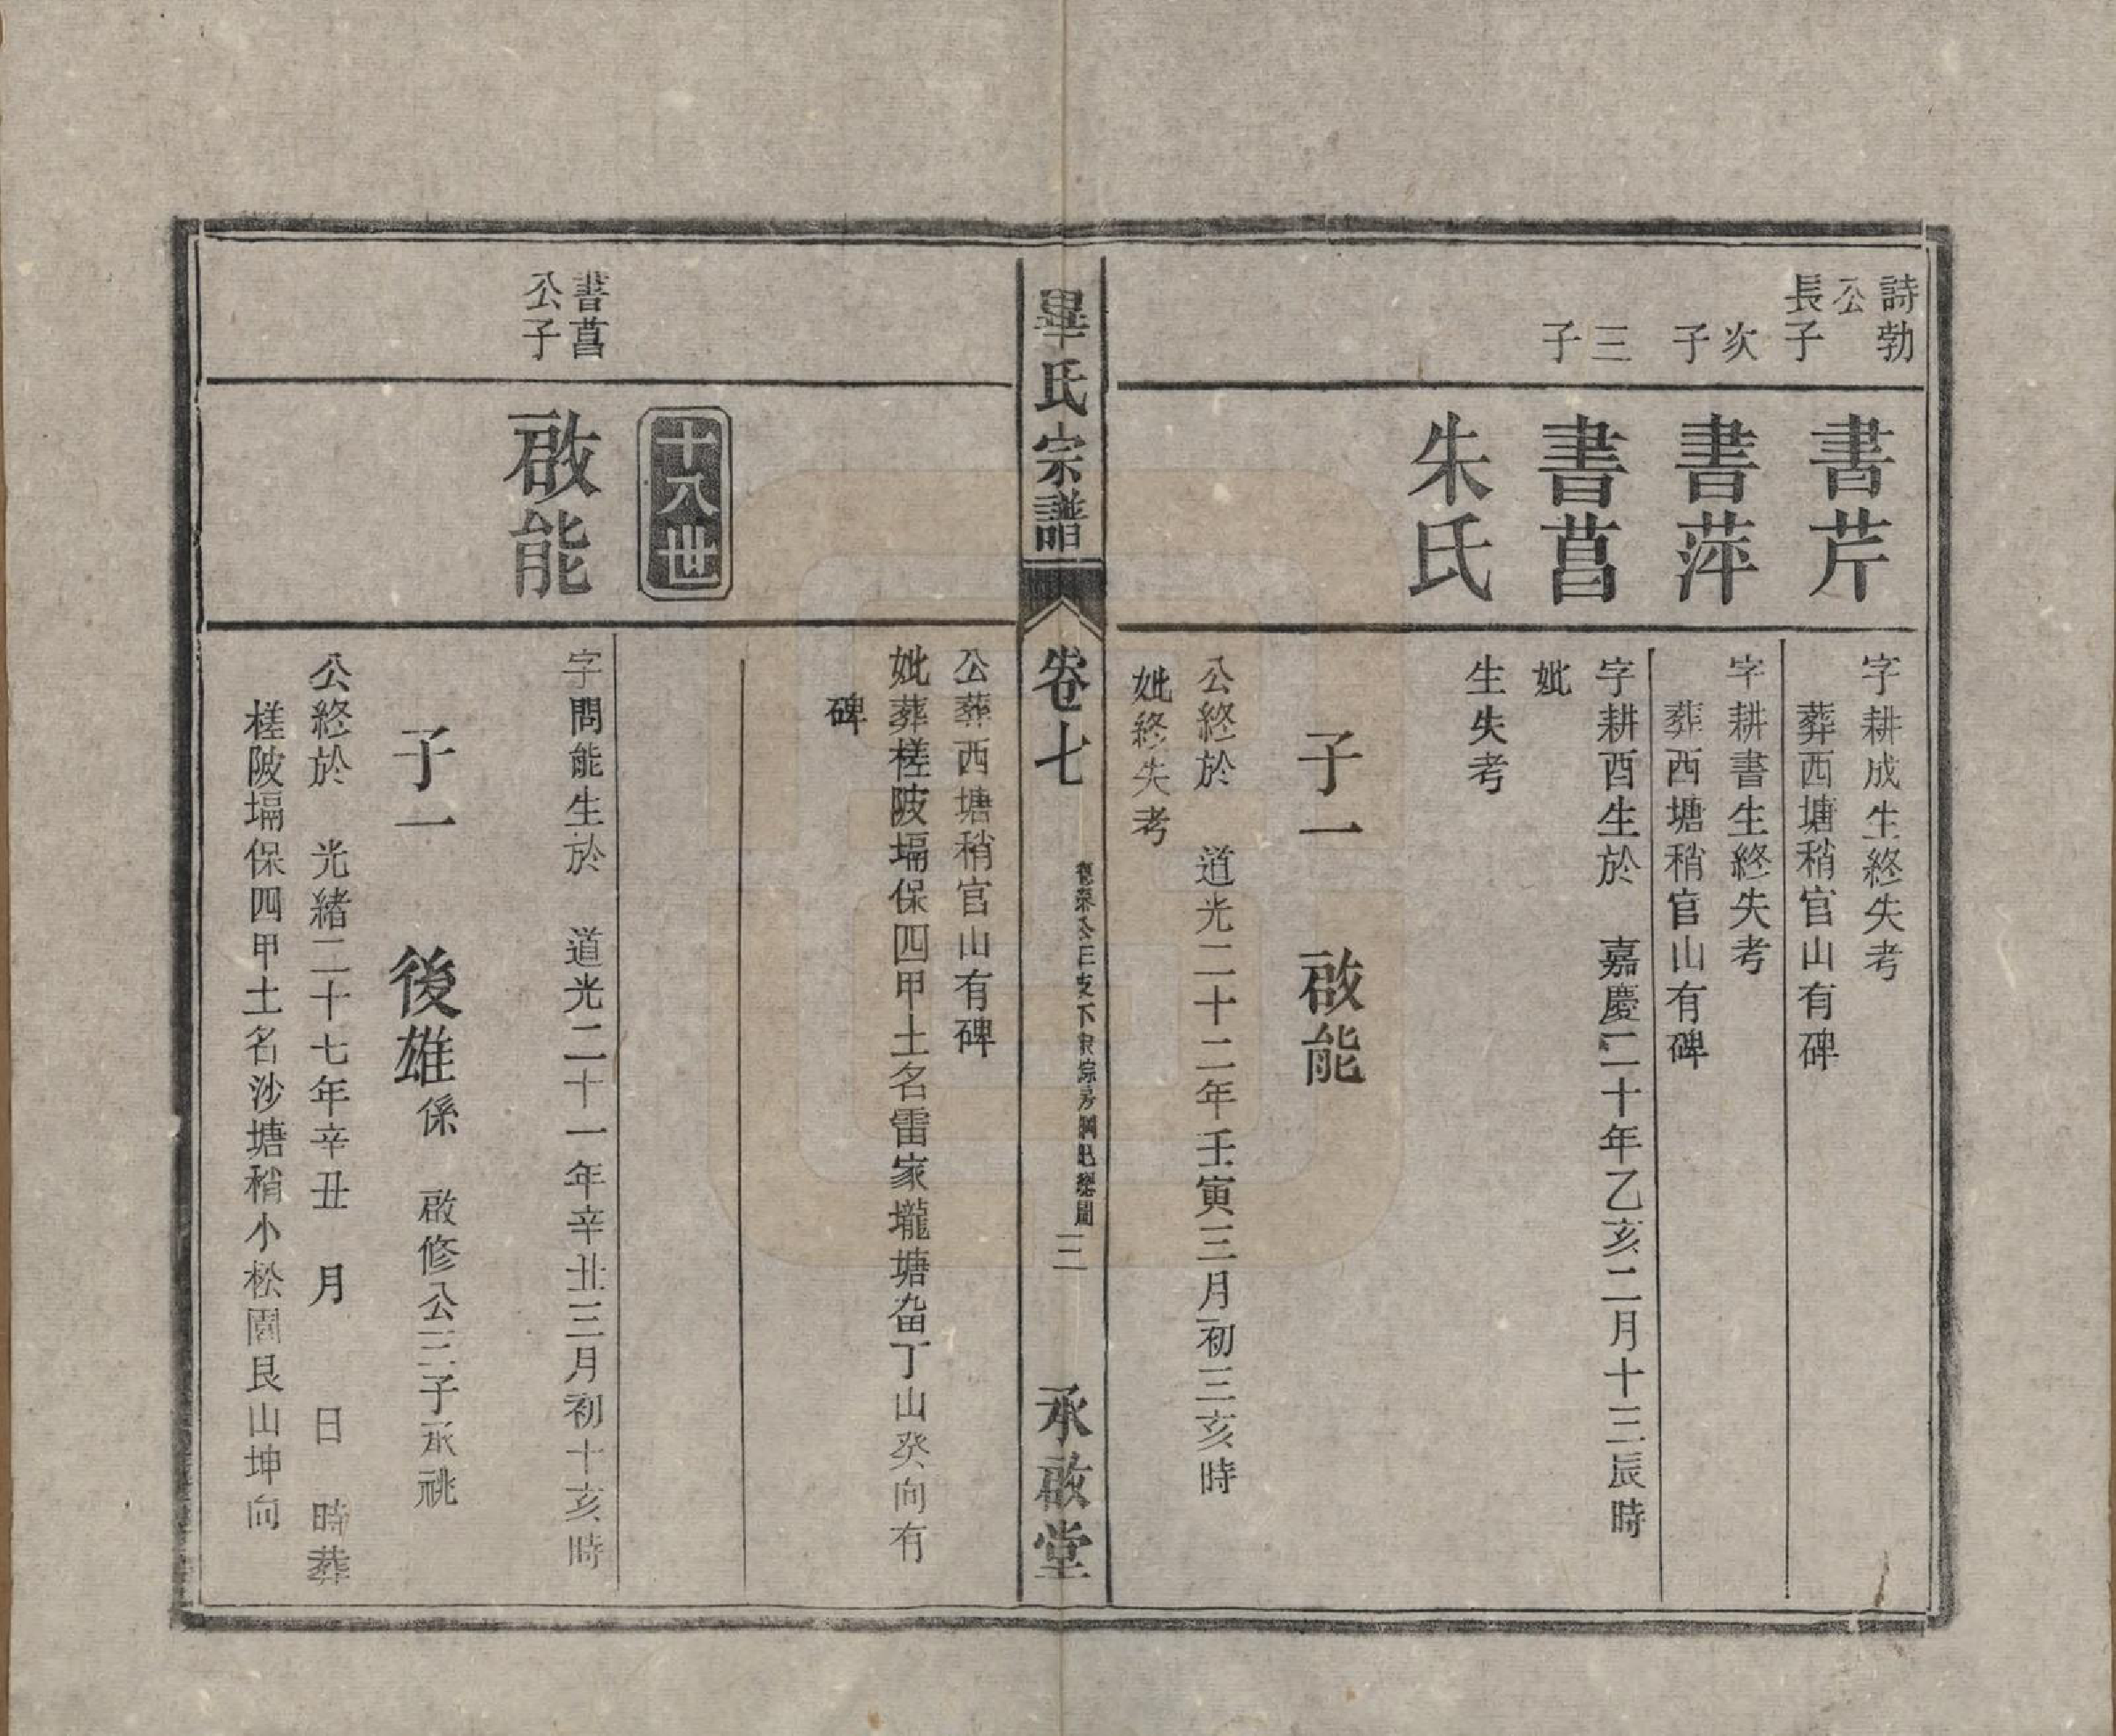 詩勃
公
長子
書芹
字耕成生終失考
葬西塘稍官山有碑
次子
書萍
字耕書生終失考
葬西塘稍官山有碑
三子
書菖
字耕酉生於 嘉慶二十年乙亥二月十三辰時
妣
朱氏
生失考
子一 啟能
公終於 道光二十二年壬寅三月初三亥時
妣終失考
畢氏宗譜
卷七
三
承啟堂
公葬西塘稍官山有碑
妣葬槎陂塥保四甲土名雷家壠塘畓丁山癸向有
碑
十八世
書菖
公子
啟能
字問能生於 道光二十一年辛丑三月初十亥時
子一 後雄係 啟修公三子承祧
公終於 光緒二十七年辛丑 月 日 時葬
槎陂塥保四甲土名沙塘稍小松園艮山坤向